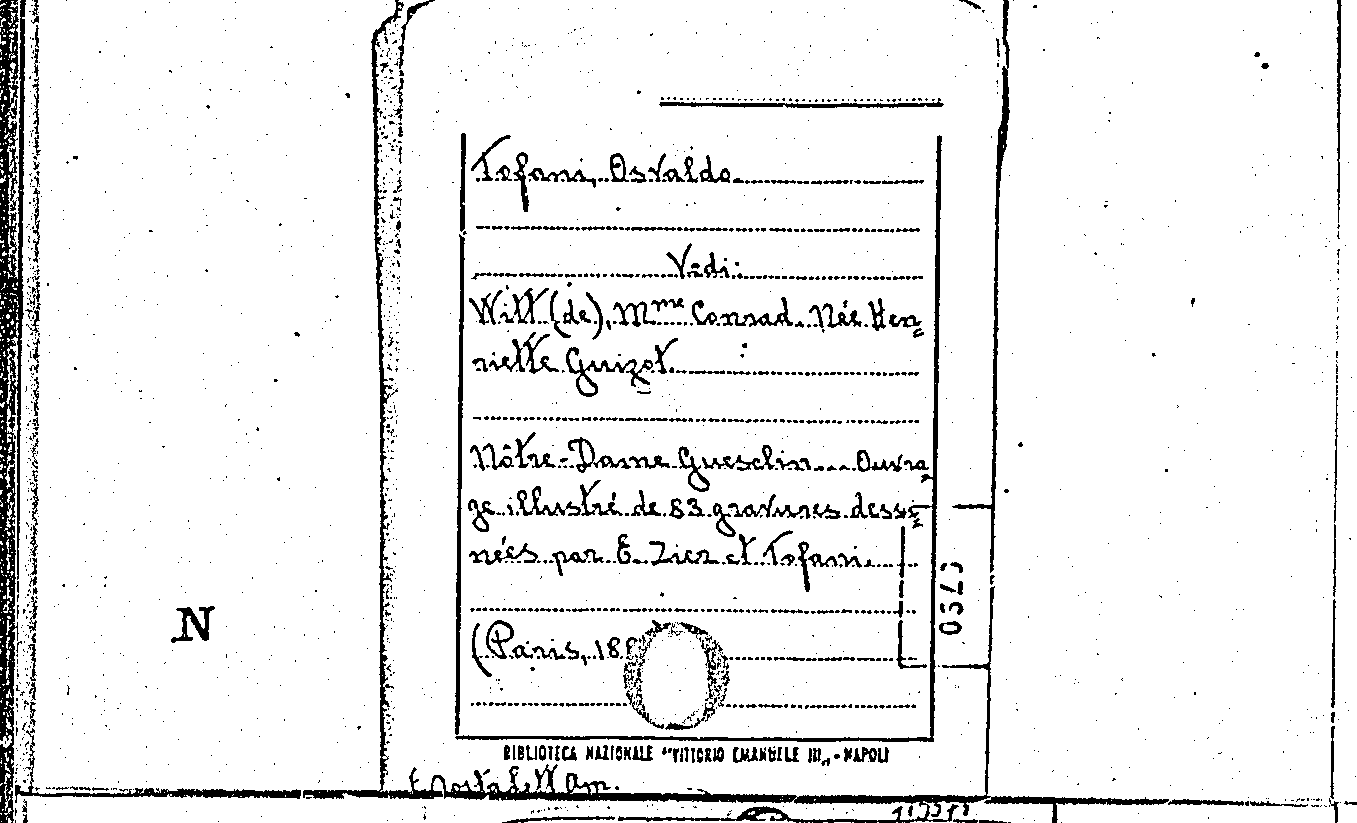 Tofani, Osvaldo.
Vedi:
Witt (de), Mme Conrad. Née Hen=
riette Guizot.
Nôtre-Dame Guesclin... Ouvra=
ge illustré de 83 gravures dessi=
nées par E. Zier et Tofani.
(Paris, 188
N
0575
BIBLIOTECA NAZIONALE "VITTORIO EMANUELE III„ - NAPOLI